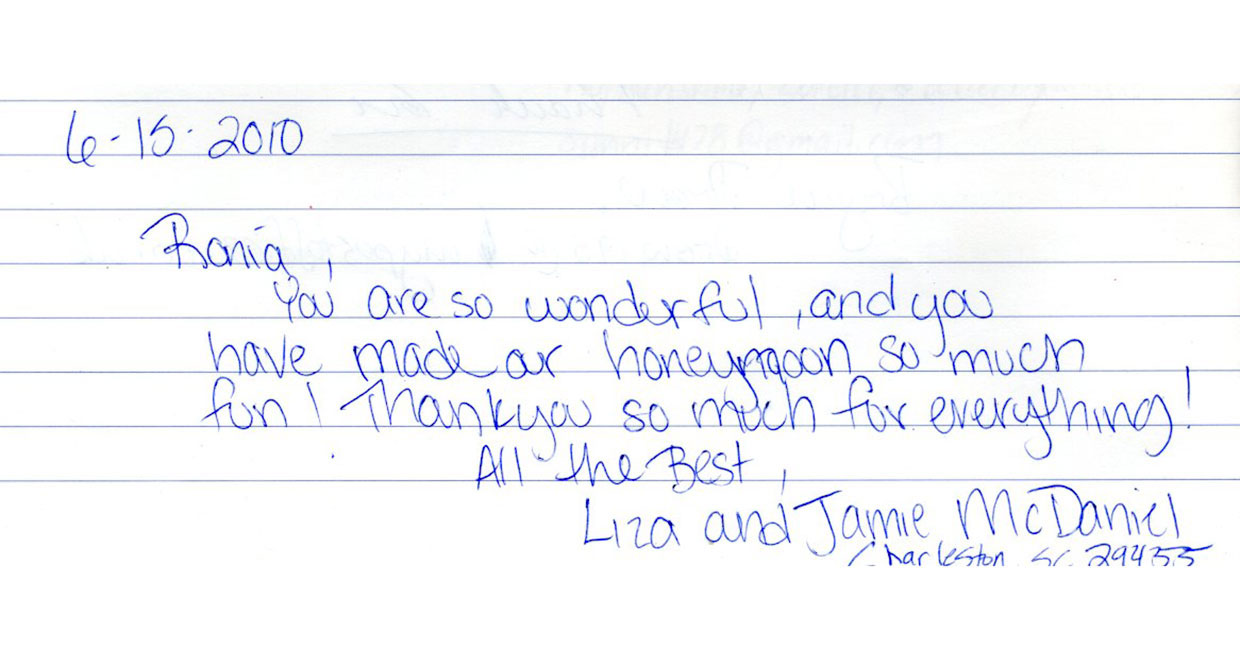 6-15-2010
Rania,
You are so wonderful, and you
have made our honeymoon so much
fun! Thankyou so much for everything!
All the Best,
Liza and Jamie McDaniel
Charleston, SC 29455